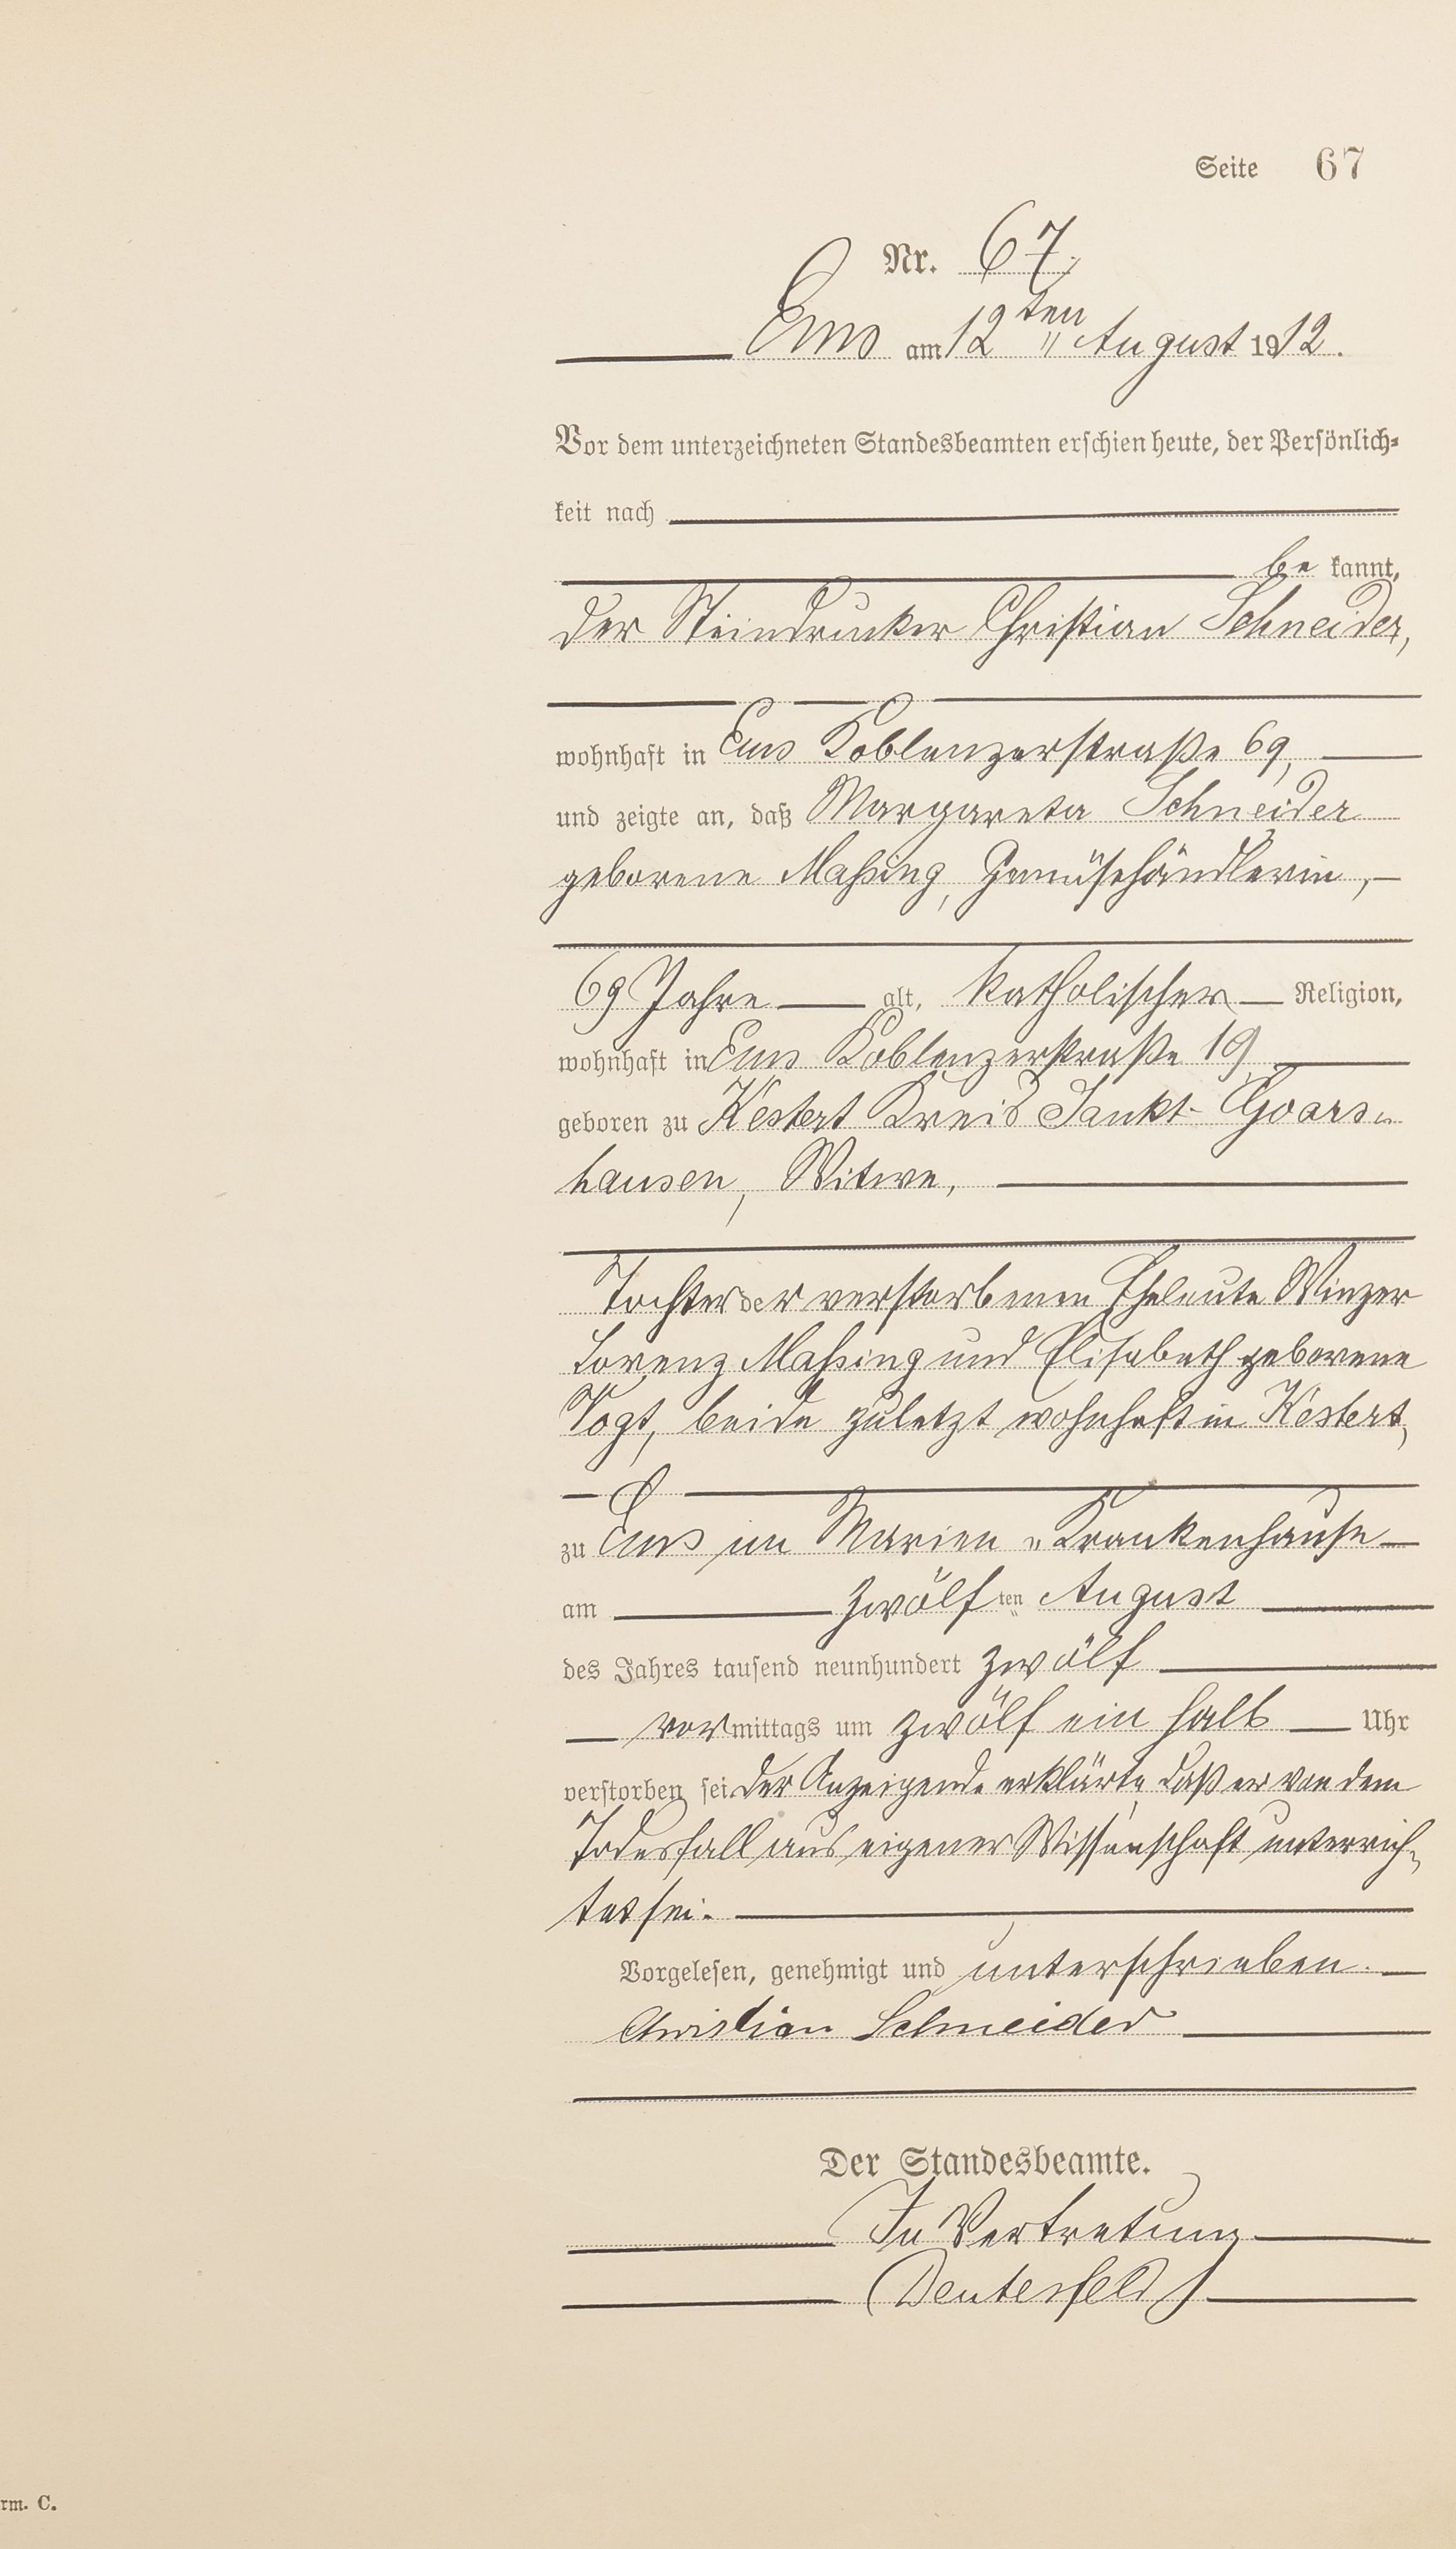 Seite 67
Nr. 67.
Ems am 12ten August 1912.
Vor dem unterzeichneten Standesbeamten erschien heute, der Persönlich-
keit nach
be kannt,
der Steindrucker Christian Schneider,
wohnhaft in Ems Koblenzerstraße 69,
und zeigte an, daß Margareta Schneider
geborene Maßing, Gemüsehändlerin,
69 Jahre alt, katholischer Religion,
wohnhaft in Ems Koblenzerstraße 19
geboren zu Kestert Kreis Sankt-Goars-
hausen, Witwe,
Tochter der verstorbenen Eheleute Winzer
Lorenz Maßing und Elisabeth geborene
Vogt, beide zuletzt wohnhaft in Kestert,
zu Ems im Marien-Krankenhause
am zwölf ten August
des Jahres tausend neunhundert zwölf
vormittags um zwölf ein halb Uhr
verstorben sei. Der Anzeigende erklärte, daß er von dem
Todesfall aus eigener Wissenschaft unterrich-
tet sei.
Vorgelesen, genehmigt und unterschrieben.
Christian Schneider
Der Standesbeamte.
In Vertretung
rm. C.